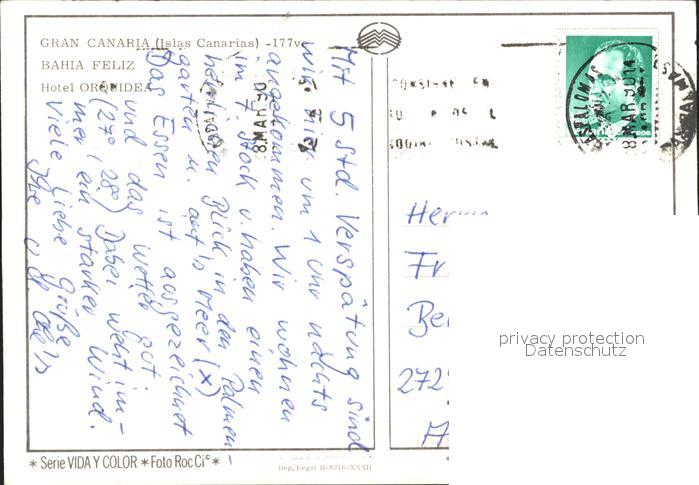 GRAN CANARIA (Islas Canarias) -177v
BAHIA FELIZ
Hotel ORQUIDEA
Mit 5 Std. Verspätung sind
wir hier um 1 Uhr nachts
angekommen. Wir wohnen
im 7. Stock u. haben einen
herrlichen Blick in den Palmen-
garten u. auf's Meer (x)
Das Essen ist ausgezeichnet
und das Wetter gut
(27° 28°) Dabei weht im-
mer ein starker Wind.
Viele liebe Grüße
8.MAR.90
8.MAR.90 14
Herrn
Fr
Be
272
privacy protection
Datenschutz
* Serie VIDA Y COLOR * Foto Roc Cia *
Dep. Legal B-8216-XXXII